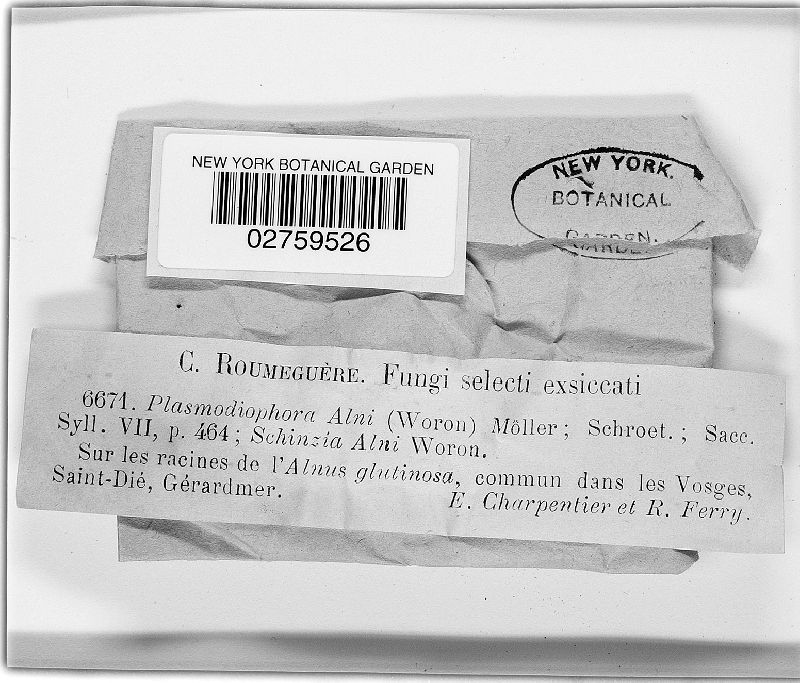 NEW YORK BOTANICAL GARDEN
02759526
NEW YORK.
BOTANICAL
GARDEN.
C. ROUMEGUÈRE. Fungi selecti exsiccati
6671. Plasmodiophora Alni (Woron) Möller; Schroet.; Sacc.
Syll. VII, p. 464; Schinzia Alni Woron.
Sur les racines de l'Alnus glutinosa, commun dans les Vosges,
Saint-Dié, Gérardmer.
E. Charpentier et R. Ferry.